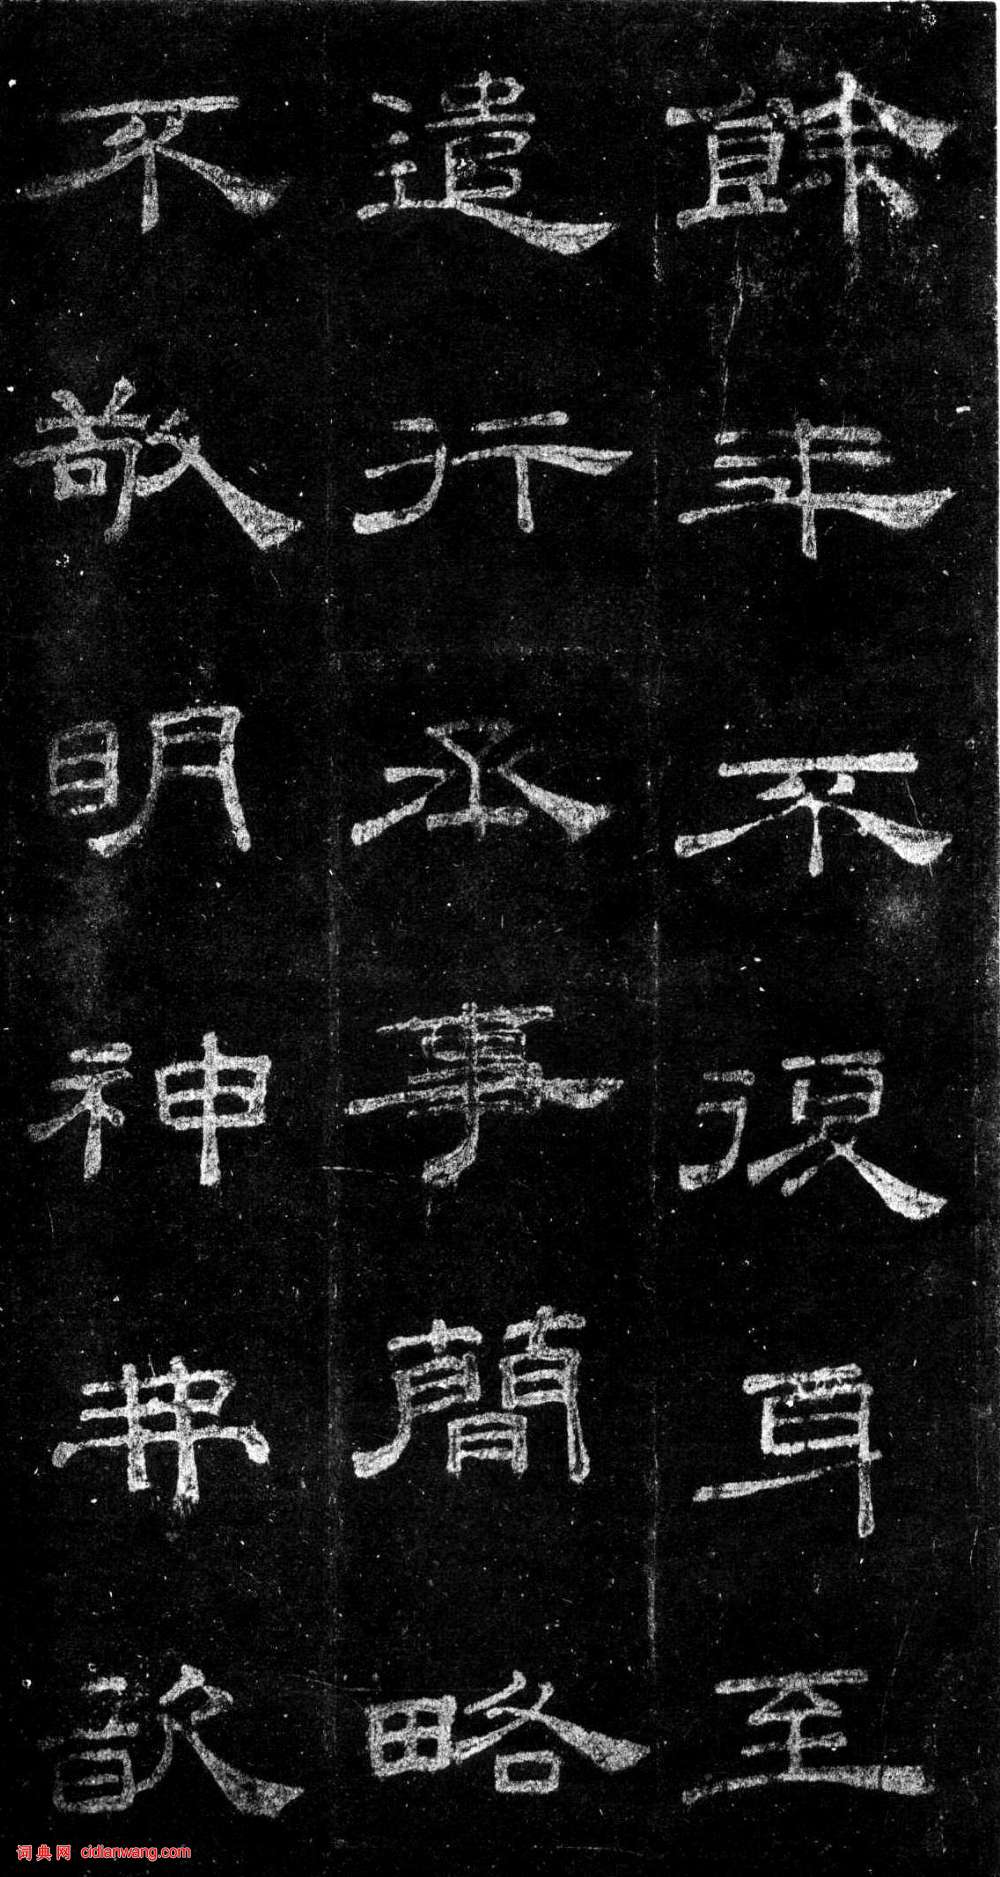 餘年不復身至
遣行丞事簡略
不敬明神弗歆
词典网 cidianwang.com